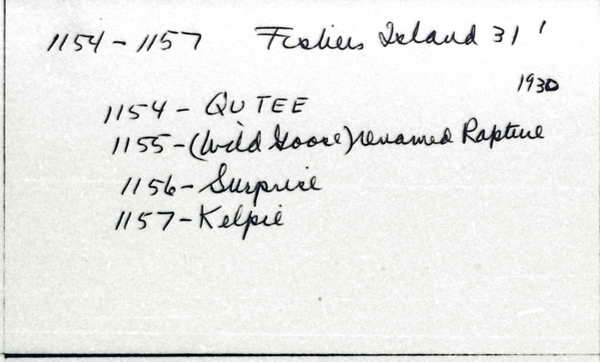 1154-1157 Fishers Island 31'
1930
1154- QUTEE
1155-(Wild Goose) renamed Rapture
1156- Surprise
1157- Kelpie